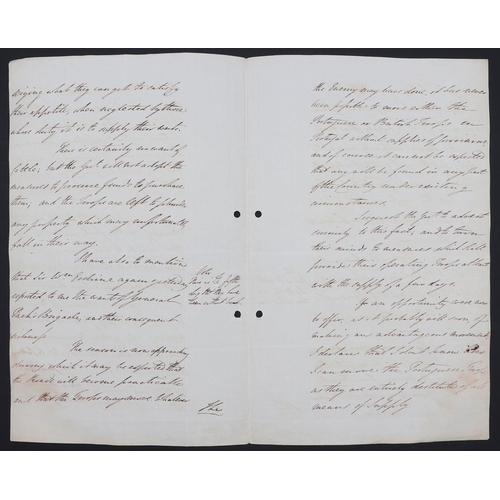 seizing what they can get to satisfy
their appetites, when neglected by those
whose duty it is to supply their wants.
There is certainly no want of
Cattle; but the Govt. will not adopt the
measures to procure funds to purchase
them; and the Troops are left to plunder
any property which may unfortunately
fall in their way.
I have also to mention
that Sir Wm Erskine again yesterday
reported to me the want of General
Pack's Brigade, and their consequent
sickness.
The season is now approaching
when it may be expected that
the Roads will become practicable
and that the Troops may move. Whatever
the
the Enemy may have done, it has never
been possible to move either the
Portuguese or British Troops in
Portugal without supplies of provisions
and of course it cannot be expected
that any will be found in any part
of the Country under existing
circumstances.
I request the Govt. to advert
seriously to this fact, and to turn
their minds to measures which shall
provide their operating Troops at least
with the supply of a few days.
If an opportunity were now
to offer, as it probably will soon of
making an advantageous movement
I declare that I don't know how
I can move the Portuguese Troops
as they are entirely destitute of all
means of Supply